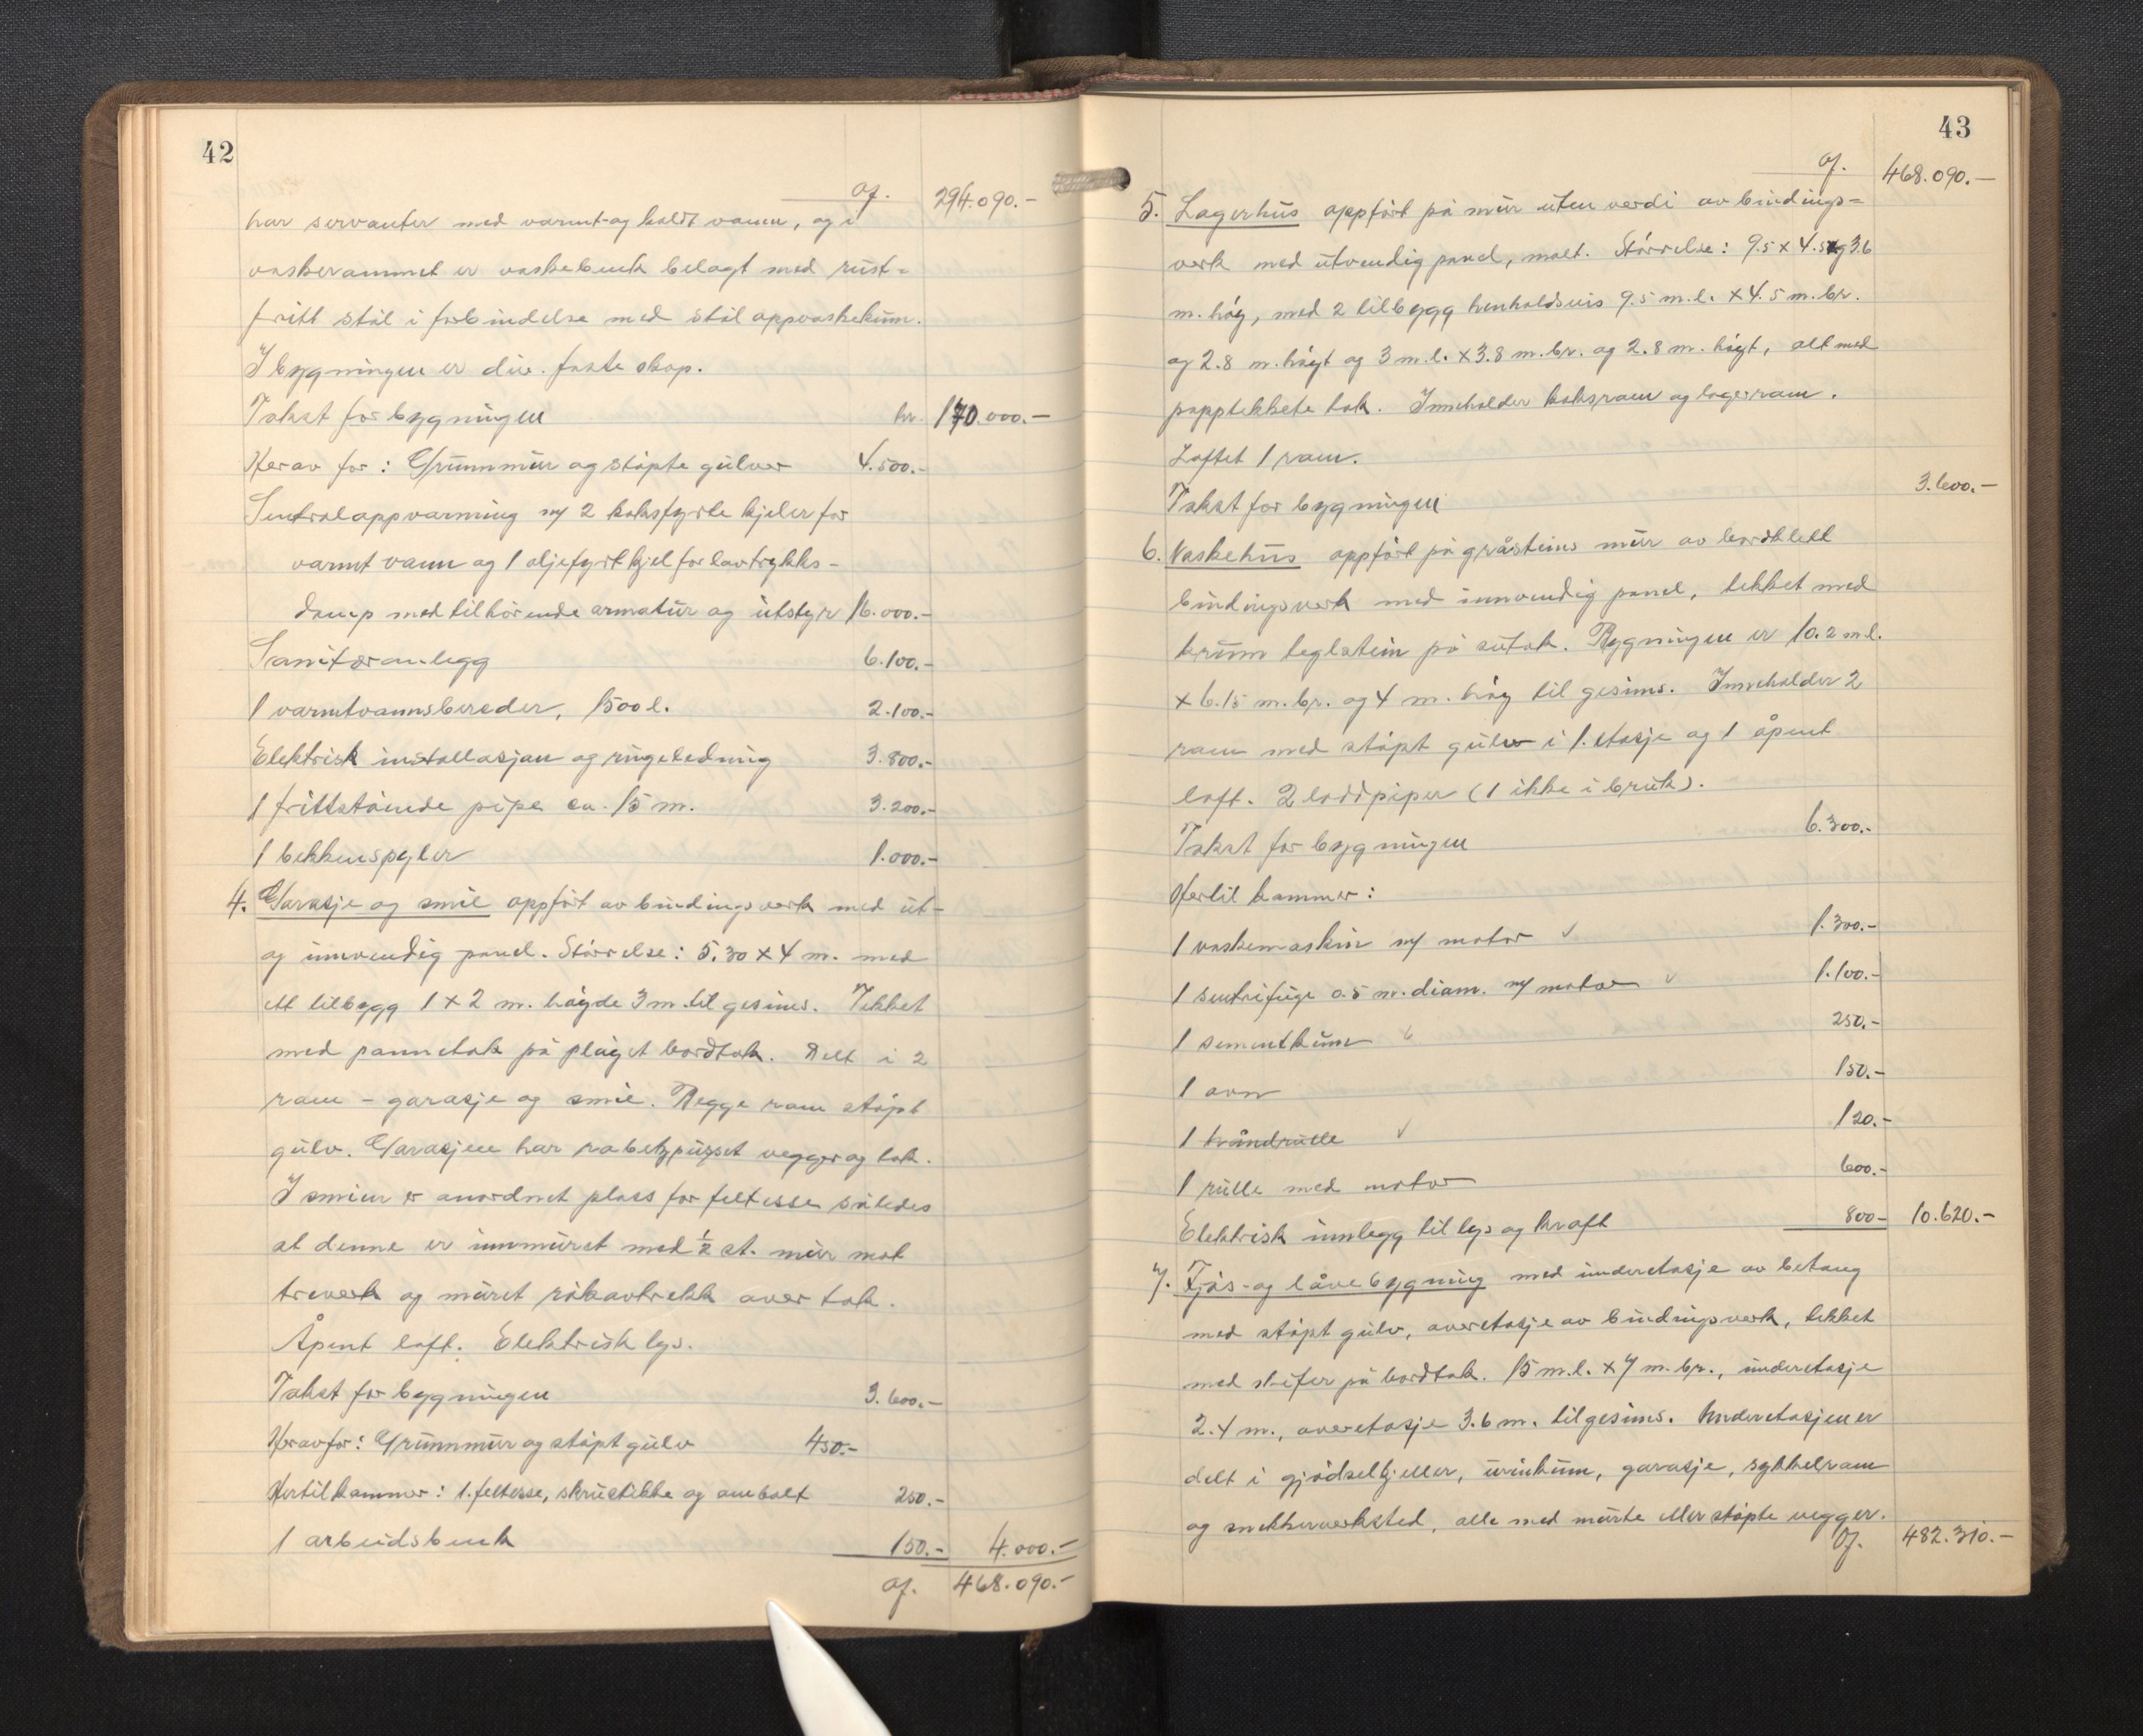 42
Of. 294.090.-
har servanter med varmt-og koldt vann, og i
vaskerommet er vaskebenk belagt med rust=
fritt stål i forbindelse med stål oppvaskekum.
I bygningen er div. faste skap.
Takst for bygningen kr. 170.000.-
Herav for: Grunnmur og støpte gulver 4.500.-
Sentraloppvarming m/ 2 koksfyrte kjeler for
varmt vann og 1 oljefyrt kjel for lavtrykks-
damp med tilhörende armatur og utstyr 16.000.-
Sanitæranlegg 6.100.-
1 varmtvannsbereder, 1500 l. 2.100.-
Elektrisk installasjon og ringeledning 3.800.-
1 frittstående pipe ca. 15 m. 3.200.-
1 bekkenspyler 1.000.-
4. Garasje og smie oppført av bindingsverk med ut-
og innvendig panel. Størrelse: 5.30 x 4 m. med
ett tilbygg 1 x 2 m. høyde 3 m. til gesims. Tekket
med pannetak på pløyet bordtak. Delt i 2
rom - garasje og smie. Begge rom støpt
gulv. Garasjen har rabetzpusset vegger og tak.
I smien er anordnet plass for feltesse således
at denne er innmuret med ½ st. mur mot
treverk og muret røkavtrekk over tak.
Åpent loft. Elektrisk lys.
Takst for bygningen 3.600.-
Herav for: Grunnmur og støpt gulv 450.-
Hertil kommer: 1. feltesse, skrustikke og ambolt 250.-
1 arbeidsbenk 150.- 4.000.-
Of. 468.090.-
43
Of. 468.090.-
5. Lagerhus oppført på mur uten verdi av bindings=
verk med utvendig panel, malt. Størrelse: 9.5 x 4.5 og 3.6
m. høy, med 2 tilbygg henholdsvis 9.5 m.l. x 4.5 m. br.
og 2.8 m. høyt og 3 m.l. x 3.8 m. br. og 2.8 m. høyt, alt med
papptekkete tak. Inneholder koksrom og lagerrom.
Loftet 1 rom.
Takst for bygningen 3.600.-
6. Vaskehus oppført på gråsteins mur av bordklett
bindingsverk med innvendig panel, tekket med
krum teglstein på sutak. Bygningen er 10.2 m l.
x 6.15 m. br. og 4 m. høy til gesims. Inneholder 2
rom med støpt gulv i 1. etasje og 1 åpent
loft. 2 loddpiper (1 ikke i bruk).
Takst for bygningen 6.300.-
Hertil kommer:
1 vaskemaskin m/ motor ✓ 1.300.-
1 sentrifuge 0.5 m. diam. m/ motor ✓ 1.100.-
1 sementkum 250.-
1 ovn 150.-
1 håndrulle ✓ 120.-
1 rulle med motor 600.-
Elektrisk innlegg til lys og kraft 800- 10.620.-
7. Fjøs- og låvebygning med underetasje av betong
med støpt gulv, overetasje av bindingsverk, tekket
med skifer på bordtak. 15 m.l. x 7 m. br., underetasje
2.4 m., overetasje 3.6 m. til gesims. Underetasjen er
delt i gjødselkjeller, urinkum, garasje, sykkelrom
og snekkerverksted, alle med murte eller støpte vegger.
Of. 482.310.-